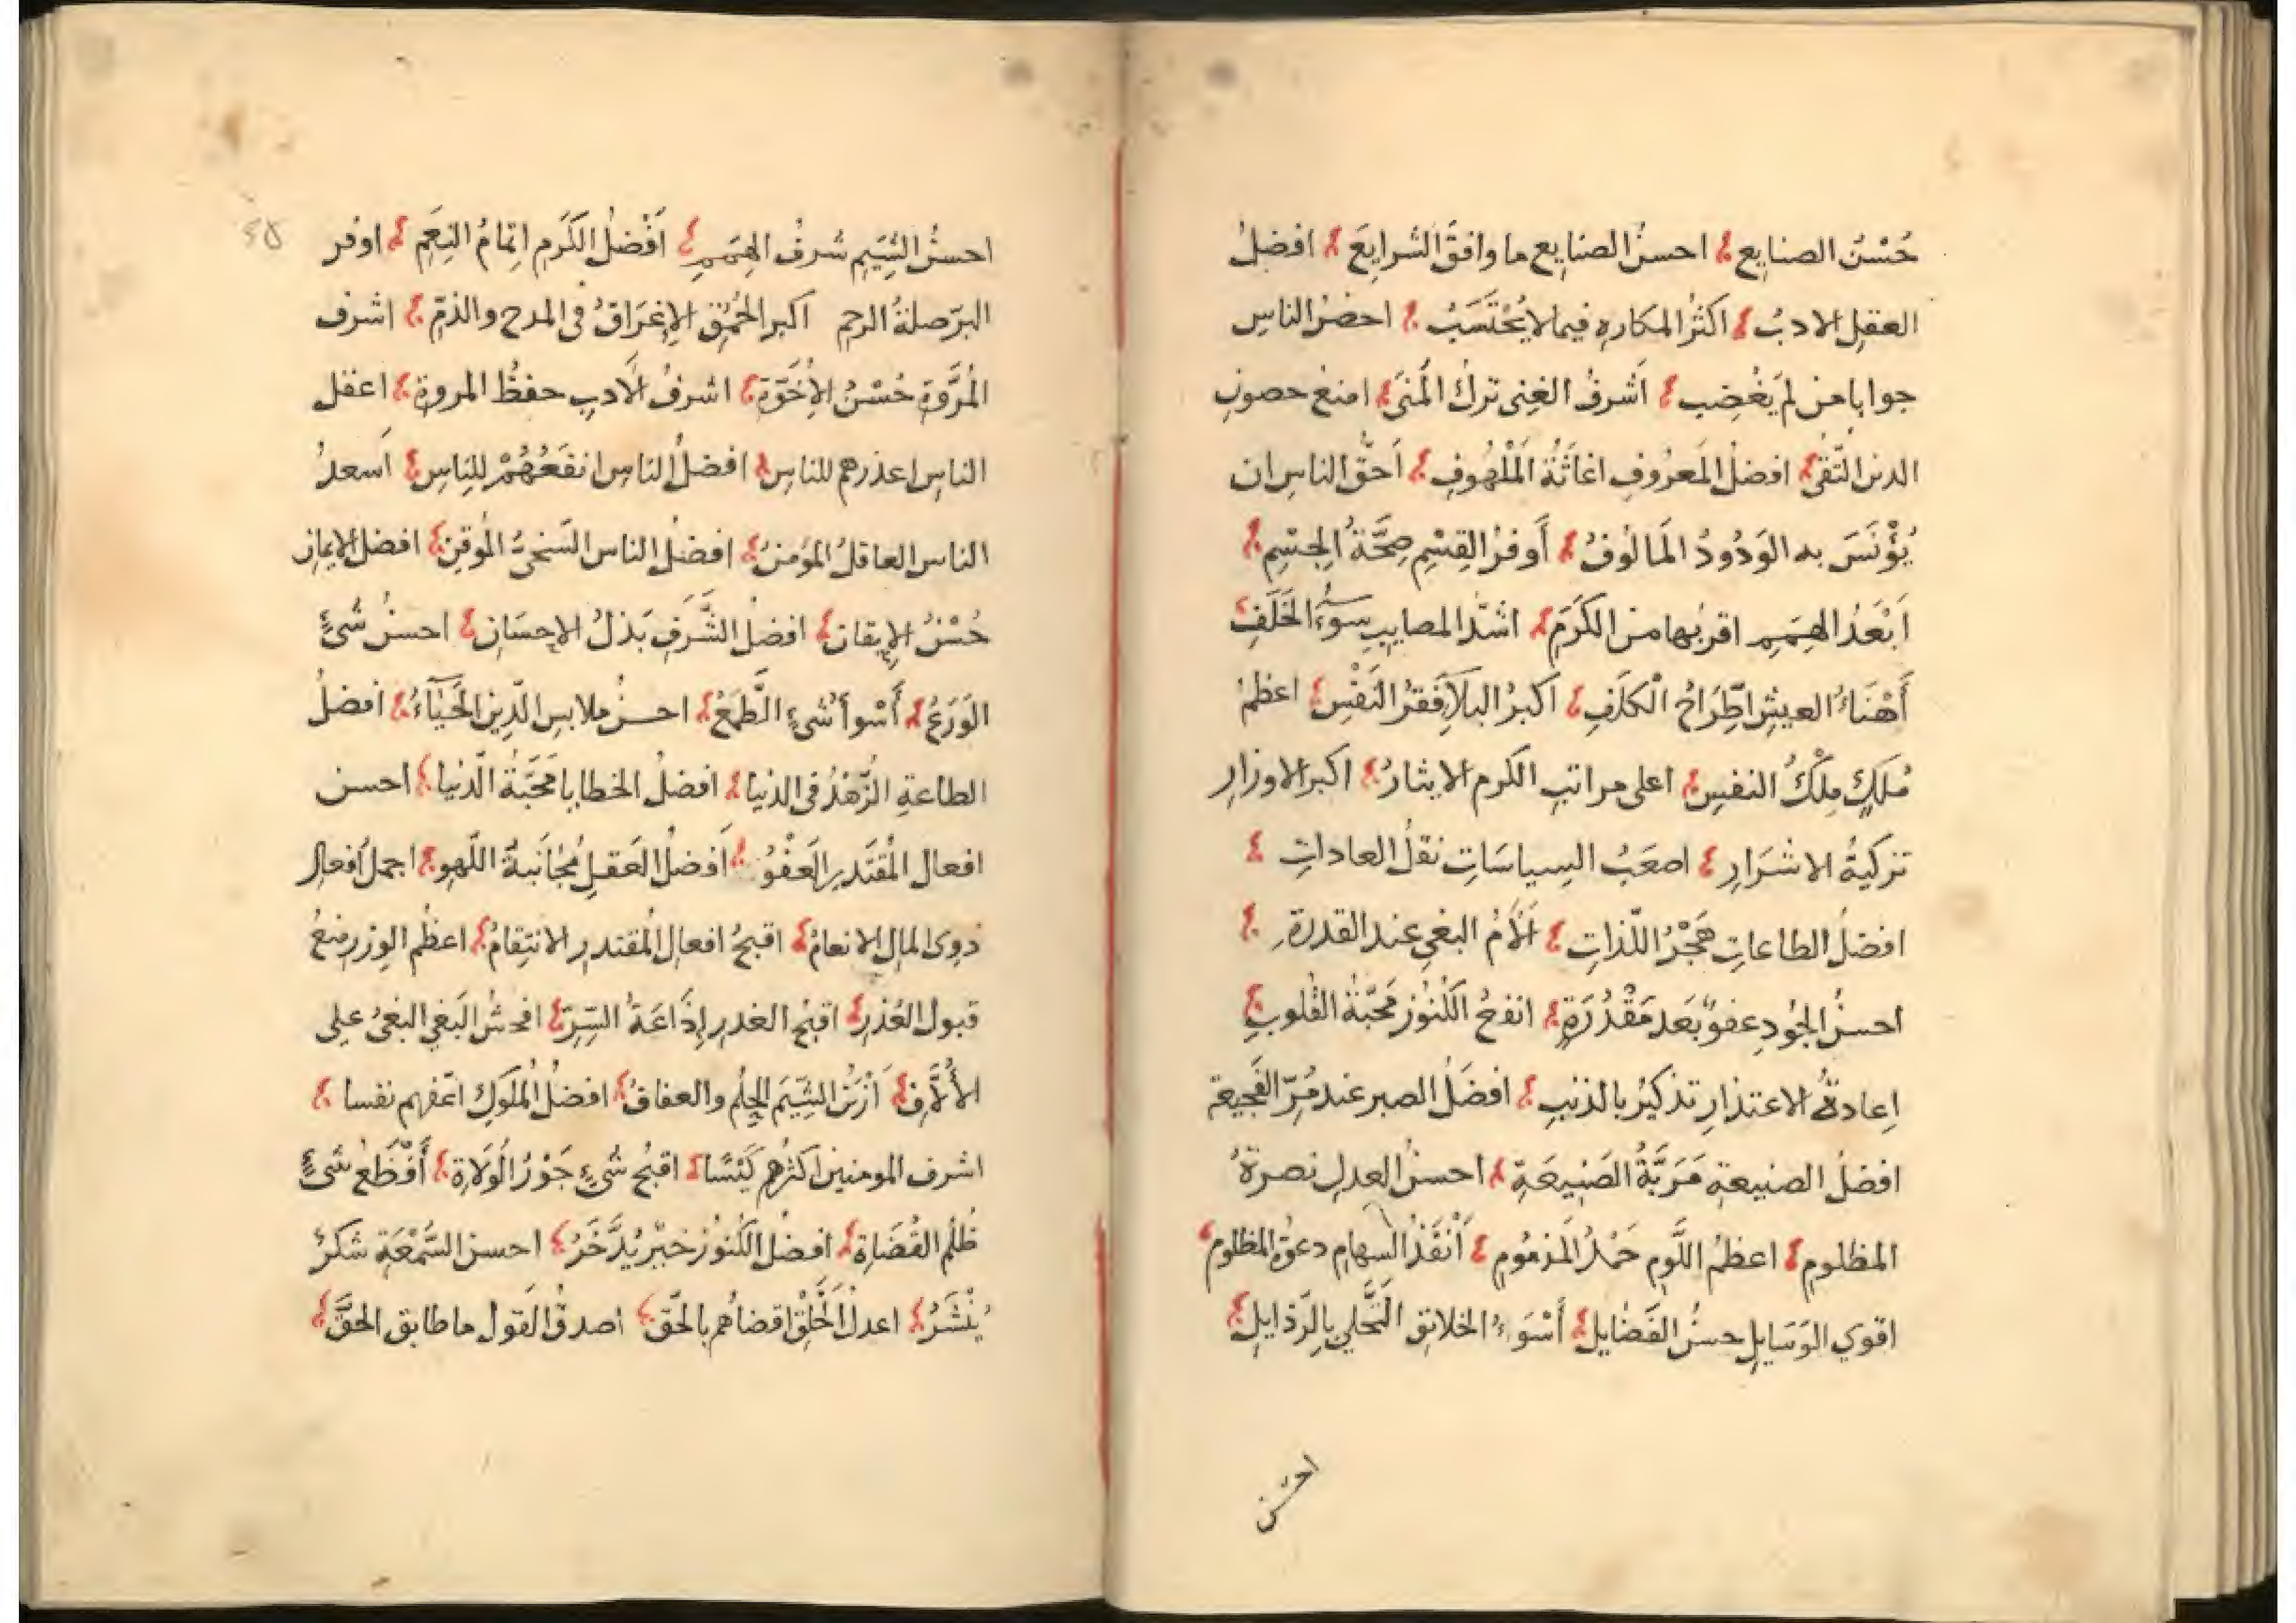 حُسْنُ الصنايع احسنُ الصنايع ما وافقَ الشرايعَ افضلُ
العقلِ الادبُ اكثرُ المكارهِ فيما لا يُحْتَسَبُ احضرُ الناسِ
جوابا من لم يَغْضِب أَشرفُ الغِنى تركُ المُنىَ امنعُ حصونِ
الدين التّقىٰ افضلُ المَعرُوفِ اغاثَةُ المَلْهُوفِ أحقُّ الناسِ ان
يُؤْنَسَ به الوَدُودُ المَالوُفُ أَوفرُ القِسْمِ صِحَّةُ الجِسْمِ
اَبْعَدُ الهِمَمِ اقربُها من الكَرَمِ اشدّ المصايبِ سوءُ الخَلَفِ
أَهْنَاءُ العيشِ اطِّرَاحُ الْكلَفِ اكبرُ البلآءِ فقرُ النَفْسِ اعظمُ
مُلكٍ مِلْكُ النفسِ اعلى مراتبِ الكرم الايثارُ اكبر الاوزارِ
تزكيةُ الاشرَارِ اصعَبُ السِياسَاتِ نقلُ العاداتِ
افضلُ الطاعاتِ هَجْرُ اللّذاتِ أَلْأَمُ البغيِ عند القدرة
احسنُ الجُودِ عفوٌ بَعدَ مَقْدُرَةٍ انفعُ الكُنُوز مَحَبّةُ القُلوبِ
اِعادةُ الاعتذارِ تذكيرٌ بالذنبِ افضَلُ الصبر عند مُرِّ الفَجيعة
افضلُ الصنيعةِ مَرَبَّةُ الصَنِيعَةِ احسنُ العدلِ نصرةُ
المظلومِ اعظمُ اللَّومِ حَمْدُ المَذمُومِ أَنْفَذُ السهامِ دعوةُ المظلوم
اقوي الوَسَايلِ حسنُ الفَضَايلِ أَسْوَءُ الخلائق التَّحَلي بالرّذايلِ
احسَن
احسنُ الشِّيَمِ شرفُ الهِمَمِ اَفْضلُ الكَرَمِ اِتمامُ النِعَمِ اوفر
البرّ صلةُ الرحِم اكبر الحُمُقِ الاِغرَاقُ في المدح والذمّ اشرف
المُروَّةِ حُسْنُ الاُخوَّةِ اشرفُ الأدبِ حفظُ المروةِ اعقل
الناس اعذرهم للناسِ افضلُ الناسِ انفعُهُمْ للناسِ أسعدُ
الناس العاقلُ المؤمنُ افضلُ الناس السَّخيُّ المُوقِنُ افضل الايمانِ
حُسْنُ الاِيقانِ افضلُ الشَّرَفِ بَذلُ الاِحسَانِ احسنُ شئٍ
الوَرَعُ أَسْوأُ شيءٍ الطَّمَعُ احسنُ ملابسِ الدّين الحَيَآءُ افضلُ
الطاعةِ الزُّهْدُ في الدنيا افضلُ الخطايا مَحَبّةُ الدّنيا احسن
افعال المُقتَدرِ العَفْوُ اَفضلُ العَقلِ مُجانَبةُ اللّهوِ اجمل اَفعالِ
ذوى المال الانعامُ اقبحُ افعالِ المُقتدرِ الانتِقامُ اعظمُ الوِزرِ منعُ
قبول العُذرِ اقبحُ الغدرِ إذَاعَةُ السِّرِّ افحشُ البَغيِ البغيُ على
الأُلاَّفِ اَزْيَنُ الشِّيَمِ الحِلْمُ والعفافُ افضلُ المُلوكِ اعفّهم نفسا
اشرف المومنين اكثرُهم كَيْسًا اقبحُ شئٍ جَوْرُ الوُلاةِ أَفْظَعُ شئٍ
ظُلمُ القُضَاةِ افضلُ الكُنُوزِ خيرٌ يُدَّخَرُ احسن السُّمْعَةِ شكرٌ
يُنْشَرُ اعدلُ الخَلْقِ اقضاهُم بالحقّ اصدقُ القولِ ما طابق الحقَّ